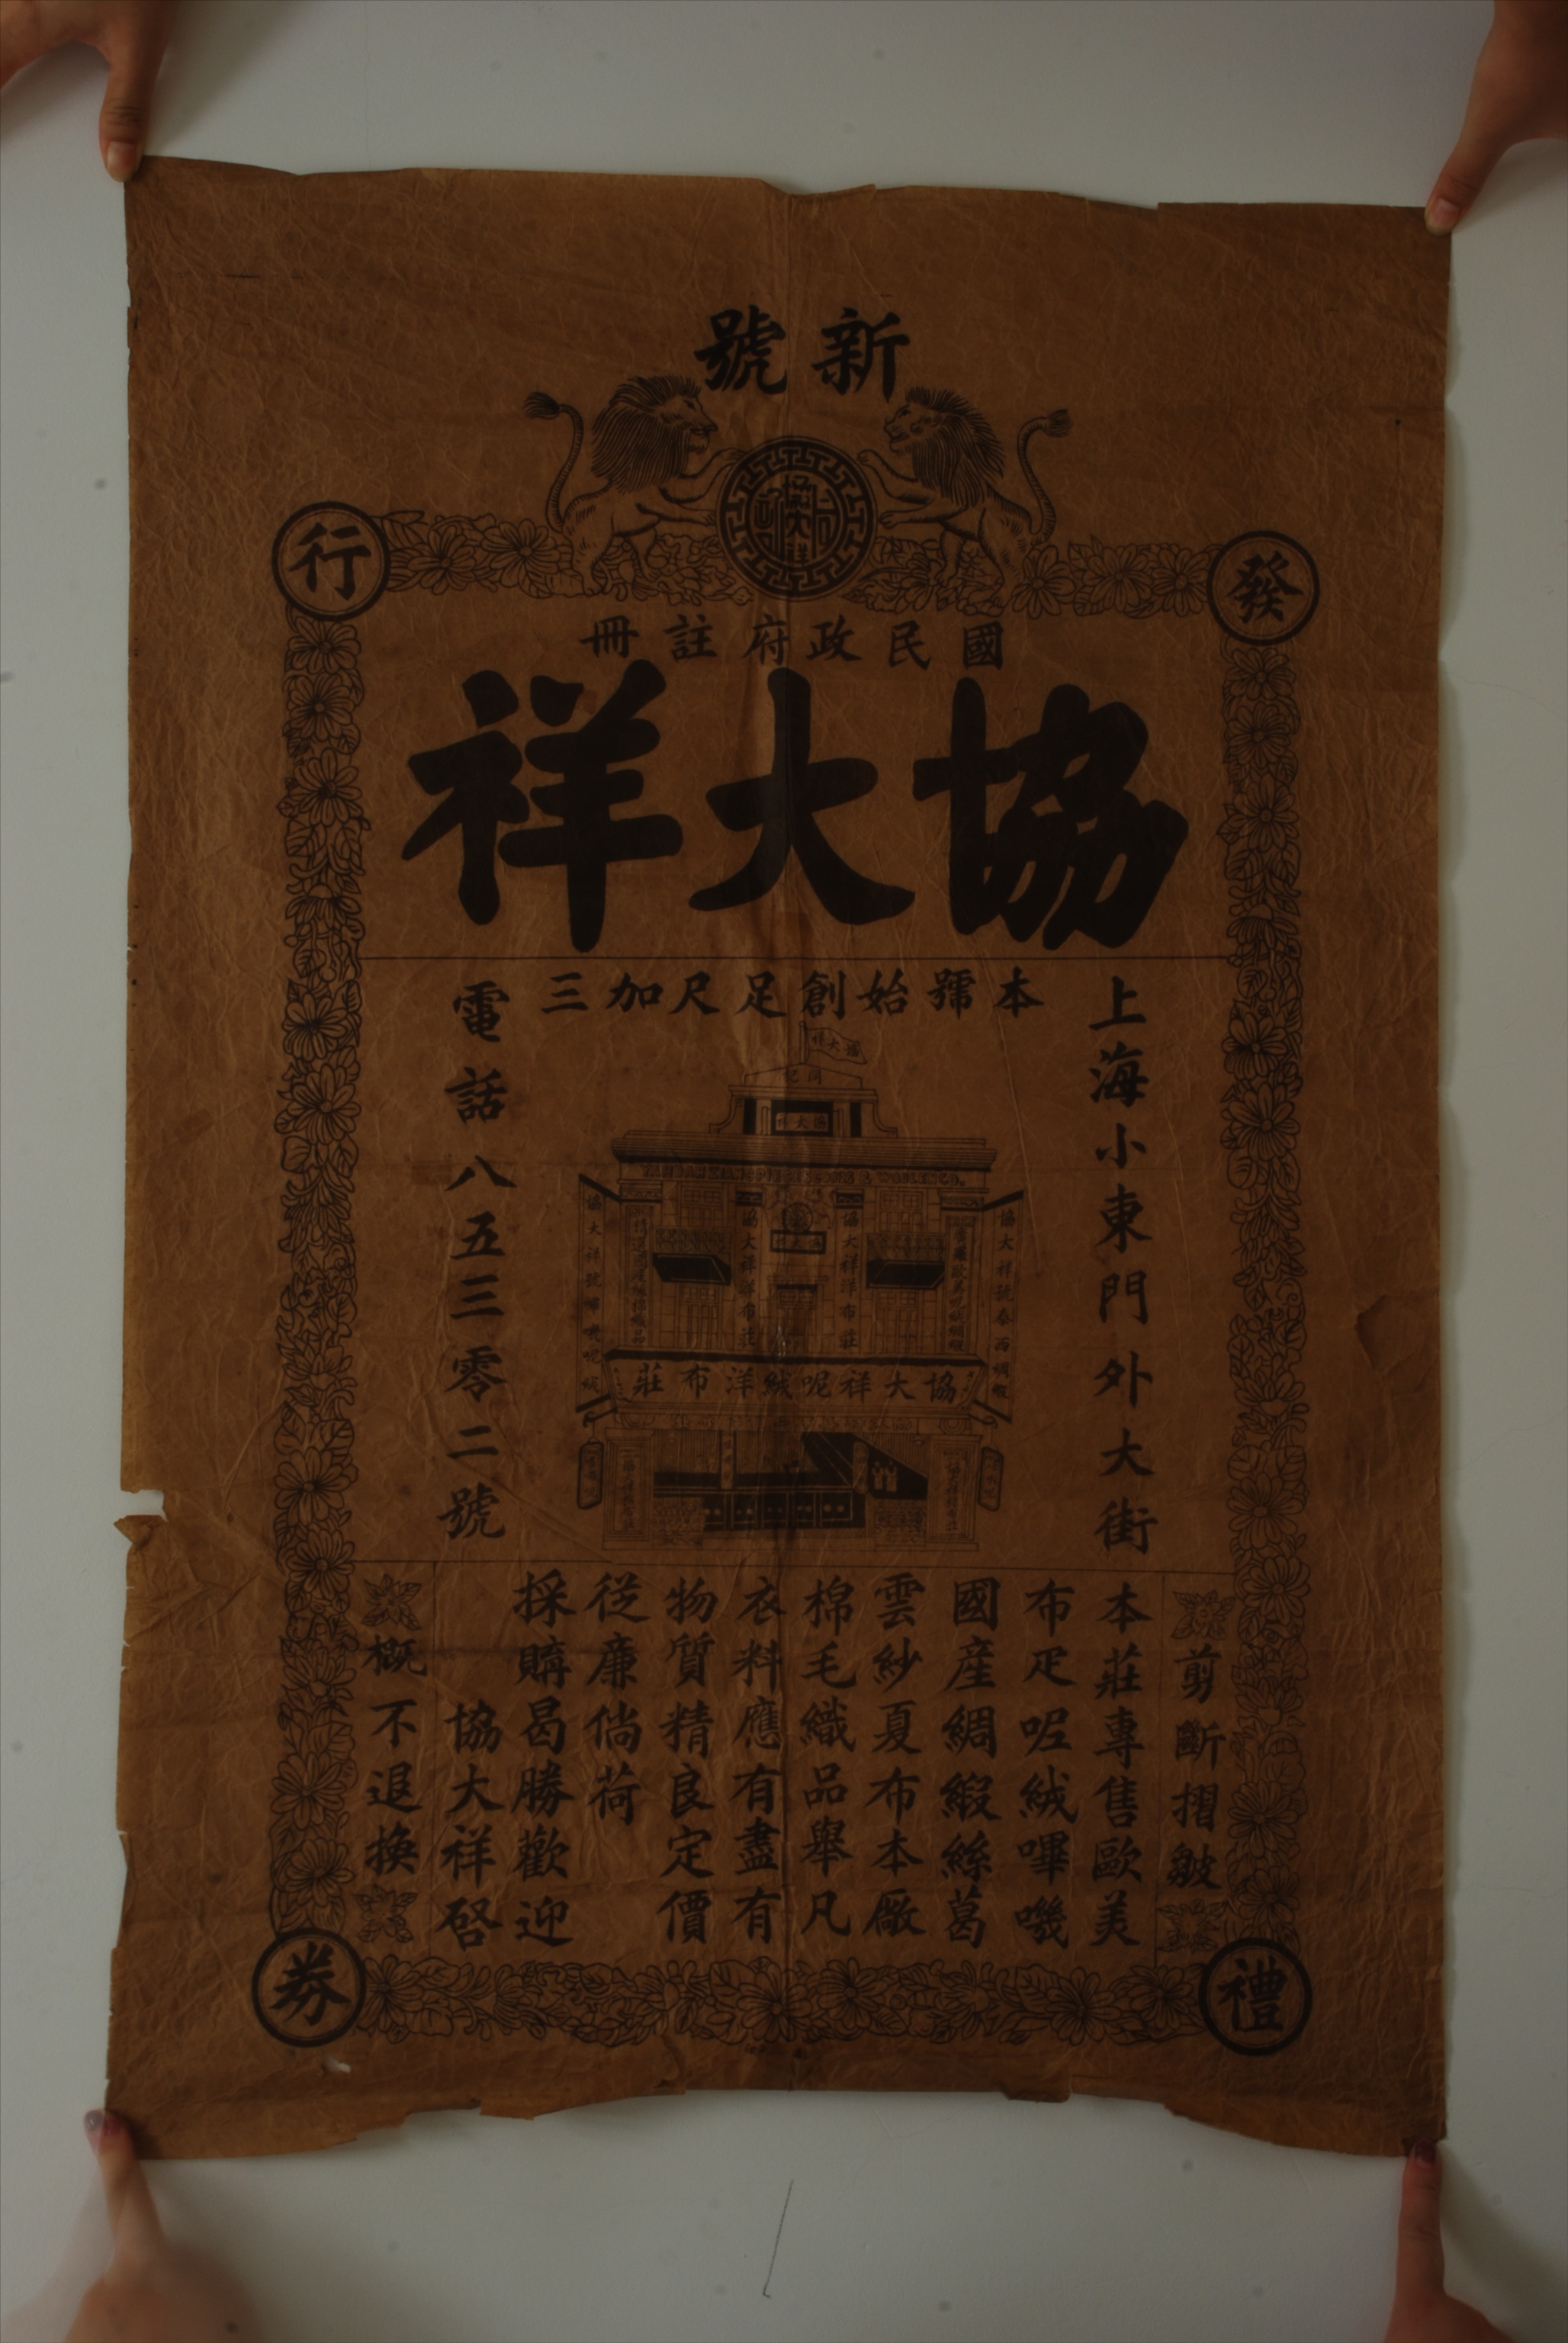 新號
發行
禮券
協大祥
國民政府註冊
協大祥
本號始創足尺加三
上海小東門外大街
電話八五三零二號
協大祥
同記
協大祥
協大祥洋布莊
協大祥洋布莊
協大祥呢絨洋布莊
剪斷摺皺
本莊專售歐美
布疋呢絨嗶嘰
國産綢緞絲葛
雲紗夏布本廠
棉毛織品舉凡
衣料應有盡有
物質精良定價
從廉倘荷
採購曷勝歡迎
協大祥啓
概不退換